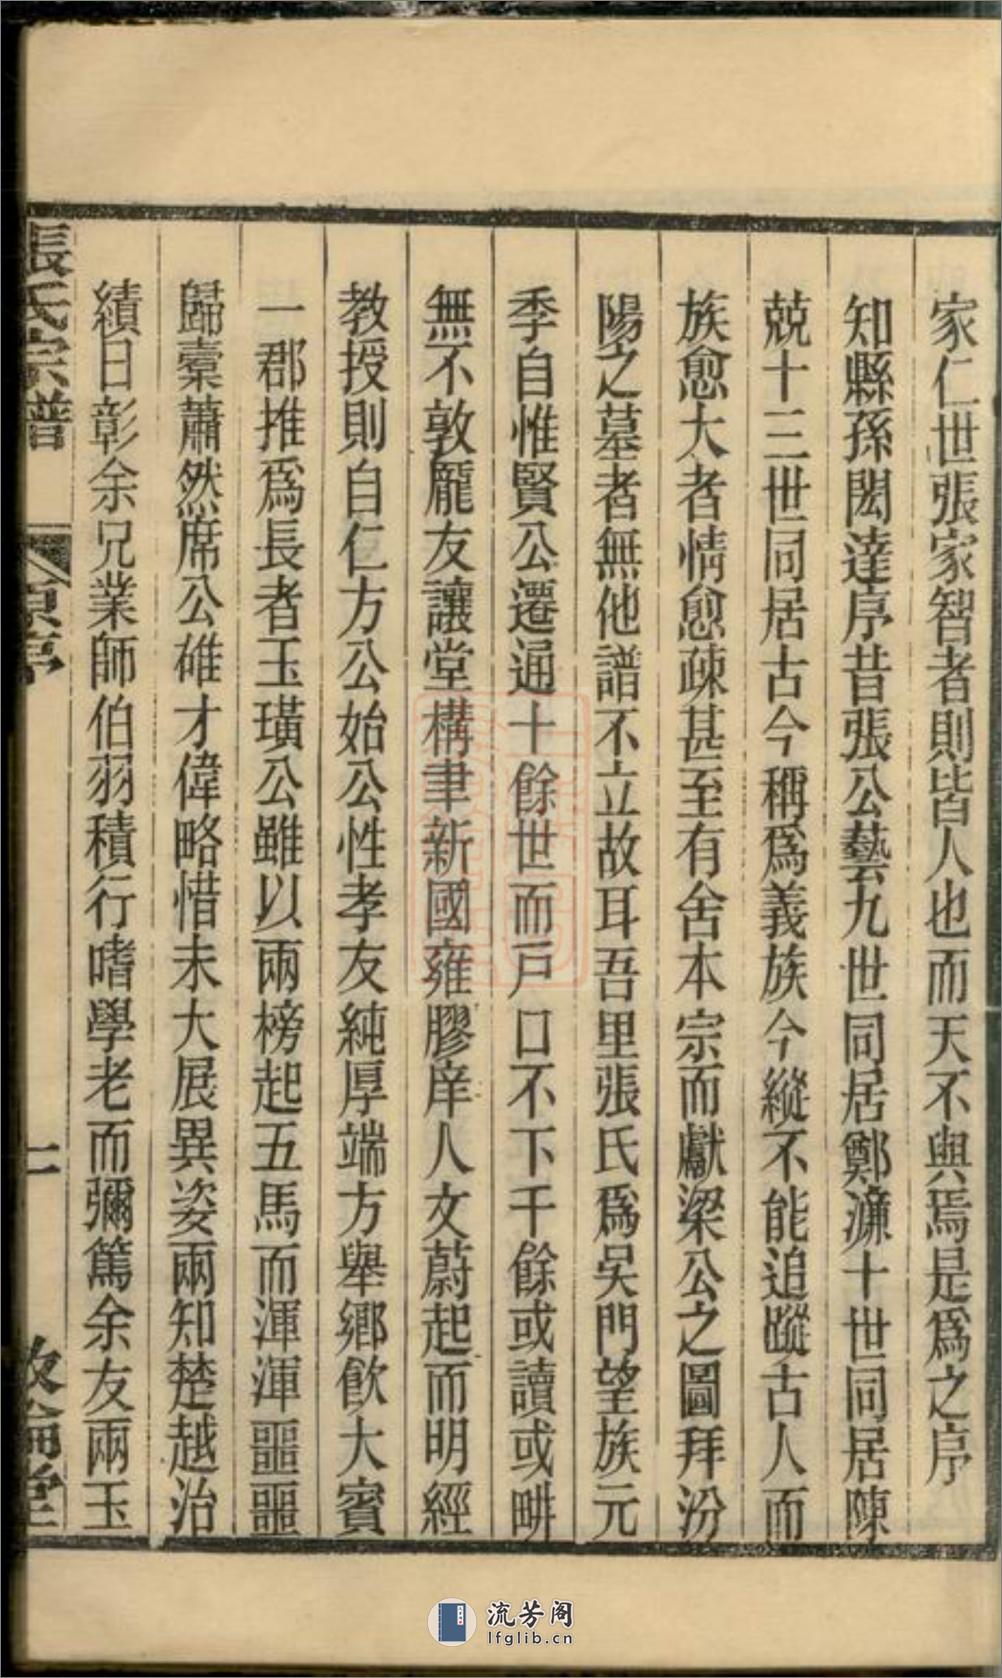 家仁世張家智者則皆人也而天不與焉是爲之序
知縣孫閎達序昔張公藝九世同居鄭濂十世同居陳
兢十三世同居古今稱爲義族今縱不能追蹤古人而
族愈大者情愈疎甚至有舍本宗而獻梁公之圖拜汾
陽之墓者無他譜不立故耳吾里張氏爲吳門望族元
季自惟賢公遷通十餘世而戶口不下千餘或讀或畊
無不敦龐友讓堂構聿新國雍膠庠人文蔚起而明經
教授則自仁方公始公性孝友純厚端方舉鄉飮大賓
一郡推爲長者玉璜公雖以兩榜起五馬而渾渾噩噩
歸橐蕭然席公雄才偉略惜未大展異姿兩知楚越治
績日彰余兄業師伯羽積行嗜學老而彌篤余友兩玉
張氏宗譜 原序 一 敦倫堂
流芳阁
lfglib.cn